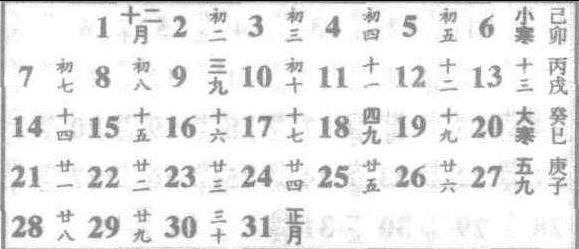 1 十二月 2 初二 3 初三 4 初四 5 初五 6 小寒 己卯
7 初七 8 初八 9 三九 10 初十 11 十一 12 十二 13 十三 丙戌
14 十四 15 十五 16 十六 17 十七 18 四九 19 十九 20 大寒 癸巳
21 廿一 22 廿二 23 廿三 24 廿四 25 廿五 26 廿六 27 五九 庚子
28 廿八 29 廿九 30 三十 31 正月